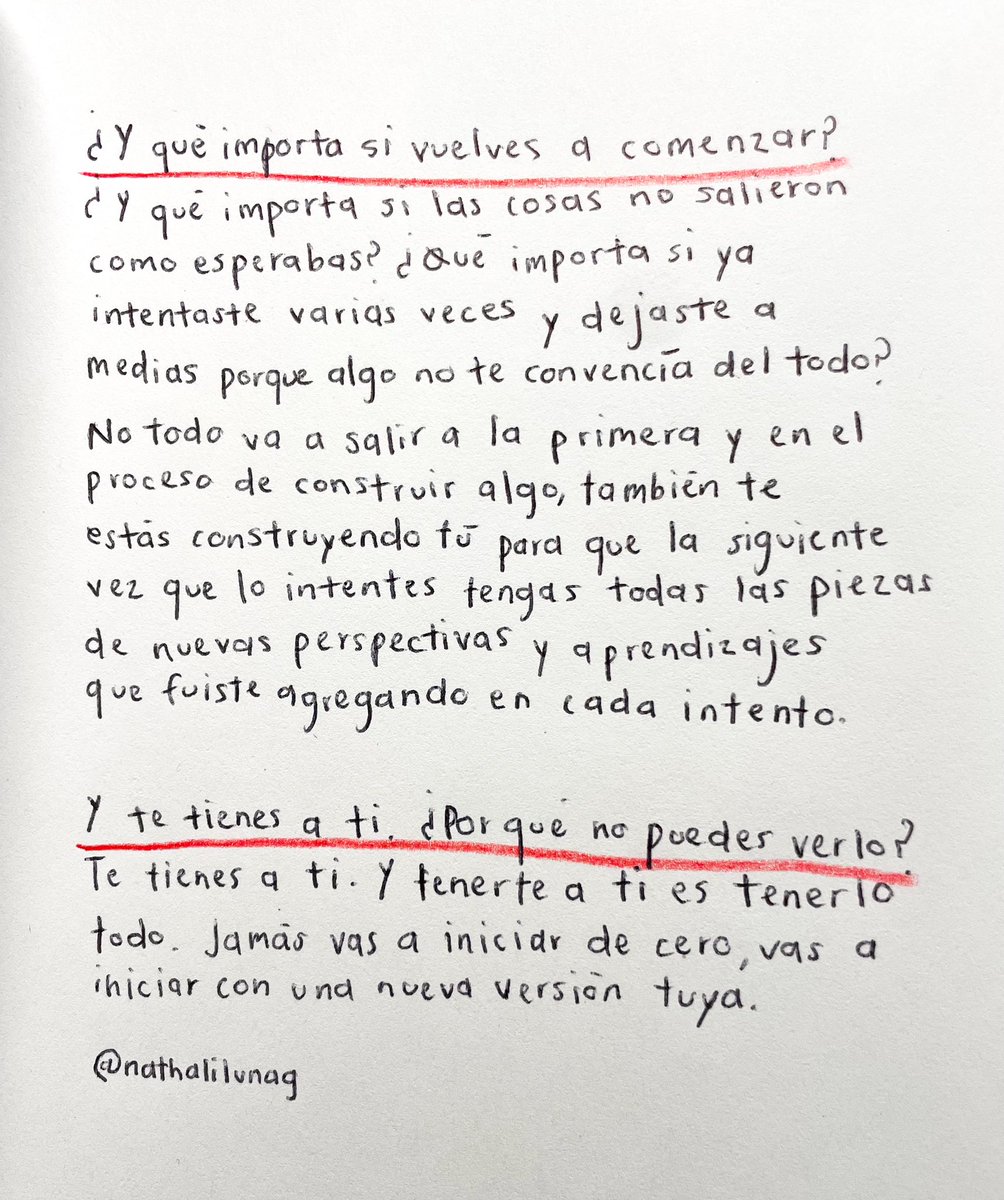 ¿Y qué importa si vuelves a comenzar?
¿Y qué importa si las cosas no salieron
como esperabas? ¿Qué importa si ya
intentaste varias veces y dejaste a
medias porque algo no te convencía del todo?
No todo va a salir a la primera y en el
proceso de construir algo, también te
estás construyendo tú para que la siguiente
vez que lo intentes tengas todas las piezas
de nuevas perspectivas y aprendizajes
que fuiste agregando en cada intento.
Y te tienes a ti. ¿Por qué no puedes verlo?
Te tienes a ti. Y tenerte a ti es tenerlo
todo. Jamás vas a iniciar de cero, vas a
iniciar con una nueva versión tuya.
@nathalilunag